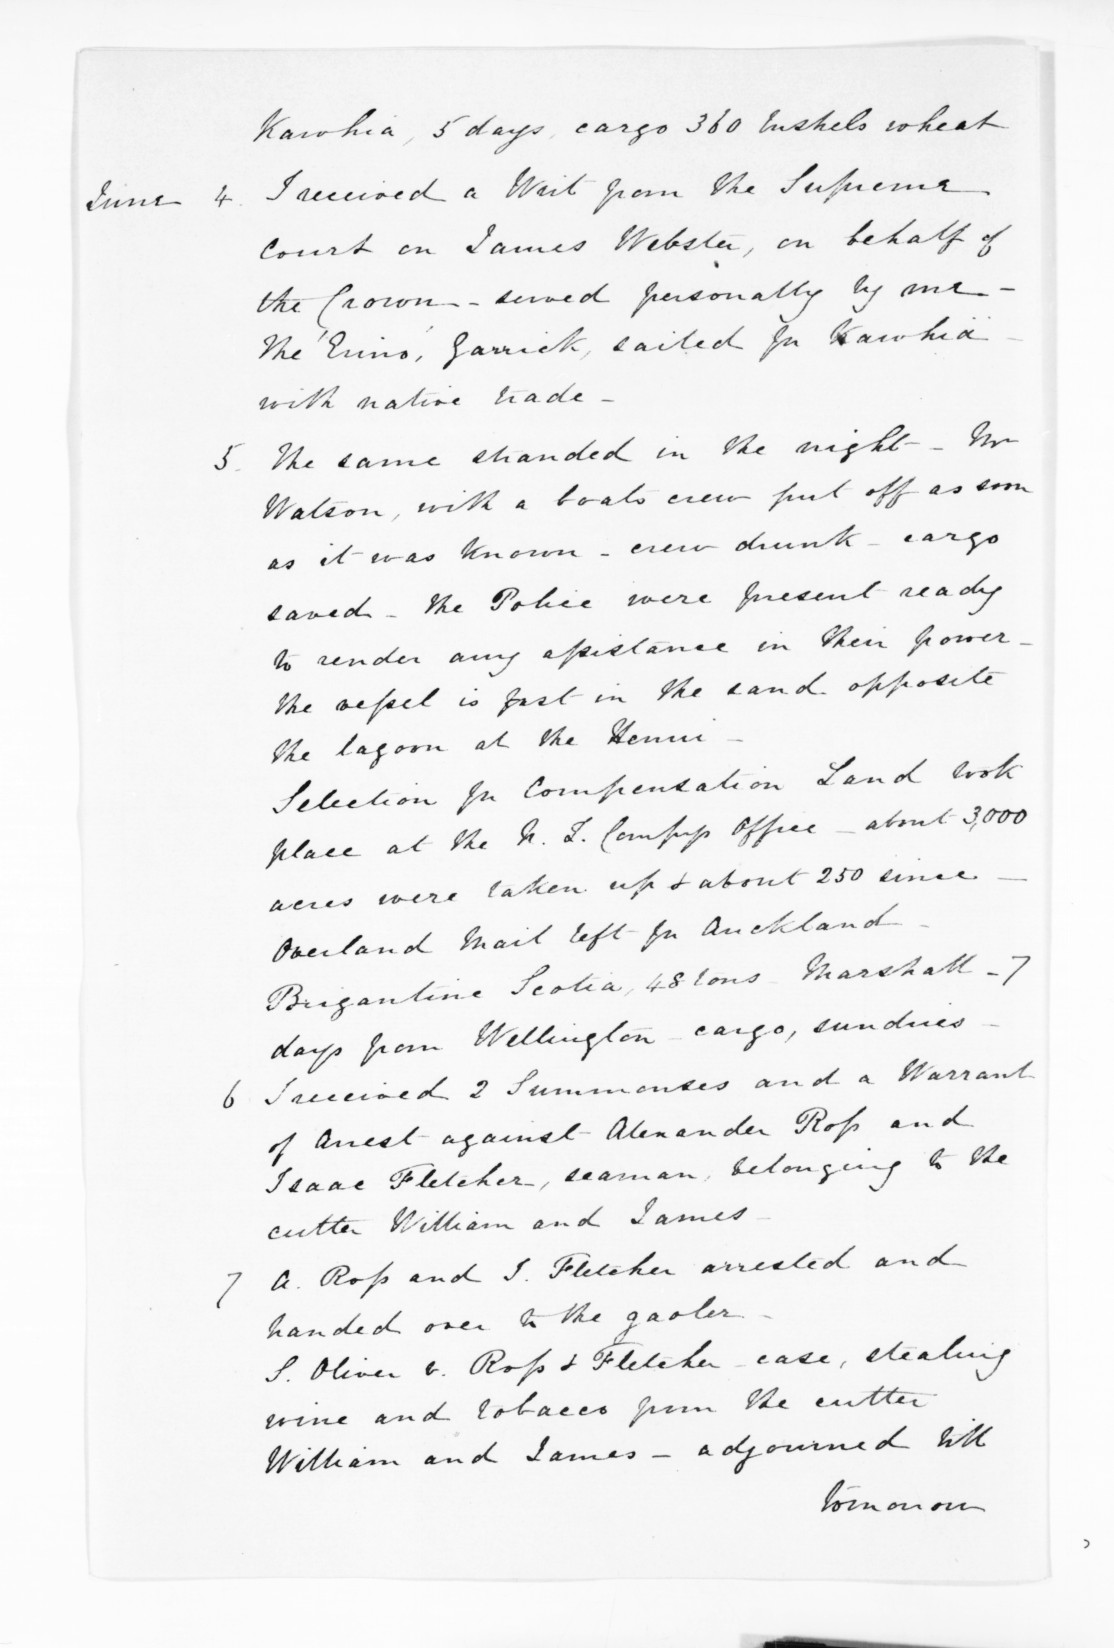 Kawhia, 5 days, cargo 360 bushels wheat
June 4. I received a Writ from the Supreme
Court on James Webster, on behalf of
the Crown - served personally by me -
The 'Erino', Garrick, sailed for Kawhia -
with native trade -
5. The same stranded in the night - Mr
Watson, with a boats crew put off as soon
as it was known - crew drunk - cargo
saved - the Police were present ready
to render any assistance in their power -
the vessel is fast in the sand opposite
the lagoon at the Henui -
Selection for Compensation Land took
place at the N. Z. Compys Office - about 3,000
acres were taken up & about 250 since -
Overland Mail left for Auckland -
Brigantine Scotia, 48 tons Marshall - 7
days from Wellington - cargo, sundries -
6 I received 2 Summonses and a Warrant
of Arrest against Alexander Ross and
Isaac Fletcher, seaman, belonging to the
cutter William and James -
7 A. Ross and I. Fletcher arrested and
handed over to the gaoler -
S. Oliver v. Ross & Fletcher - case, stealing
wine and tobacco from the cutter
William and James - adjourned till
tomorrow